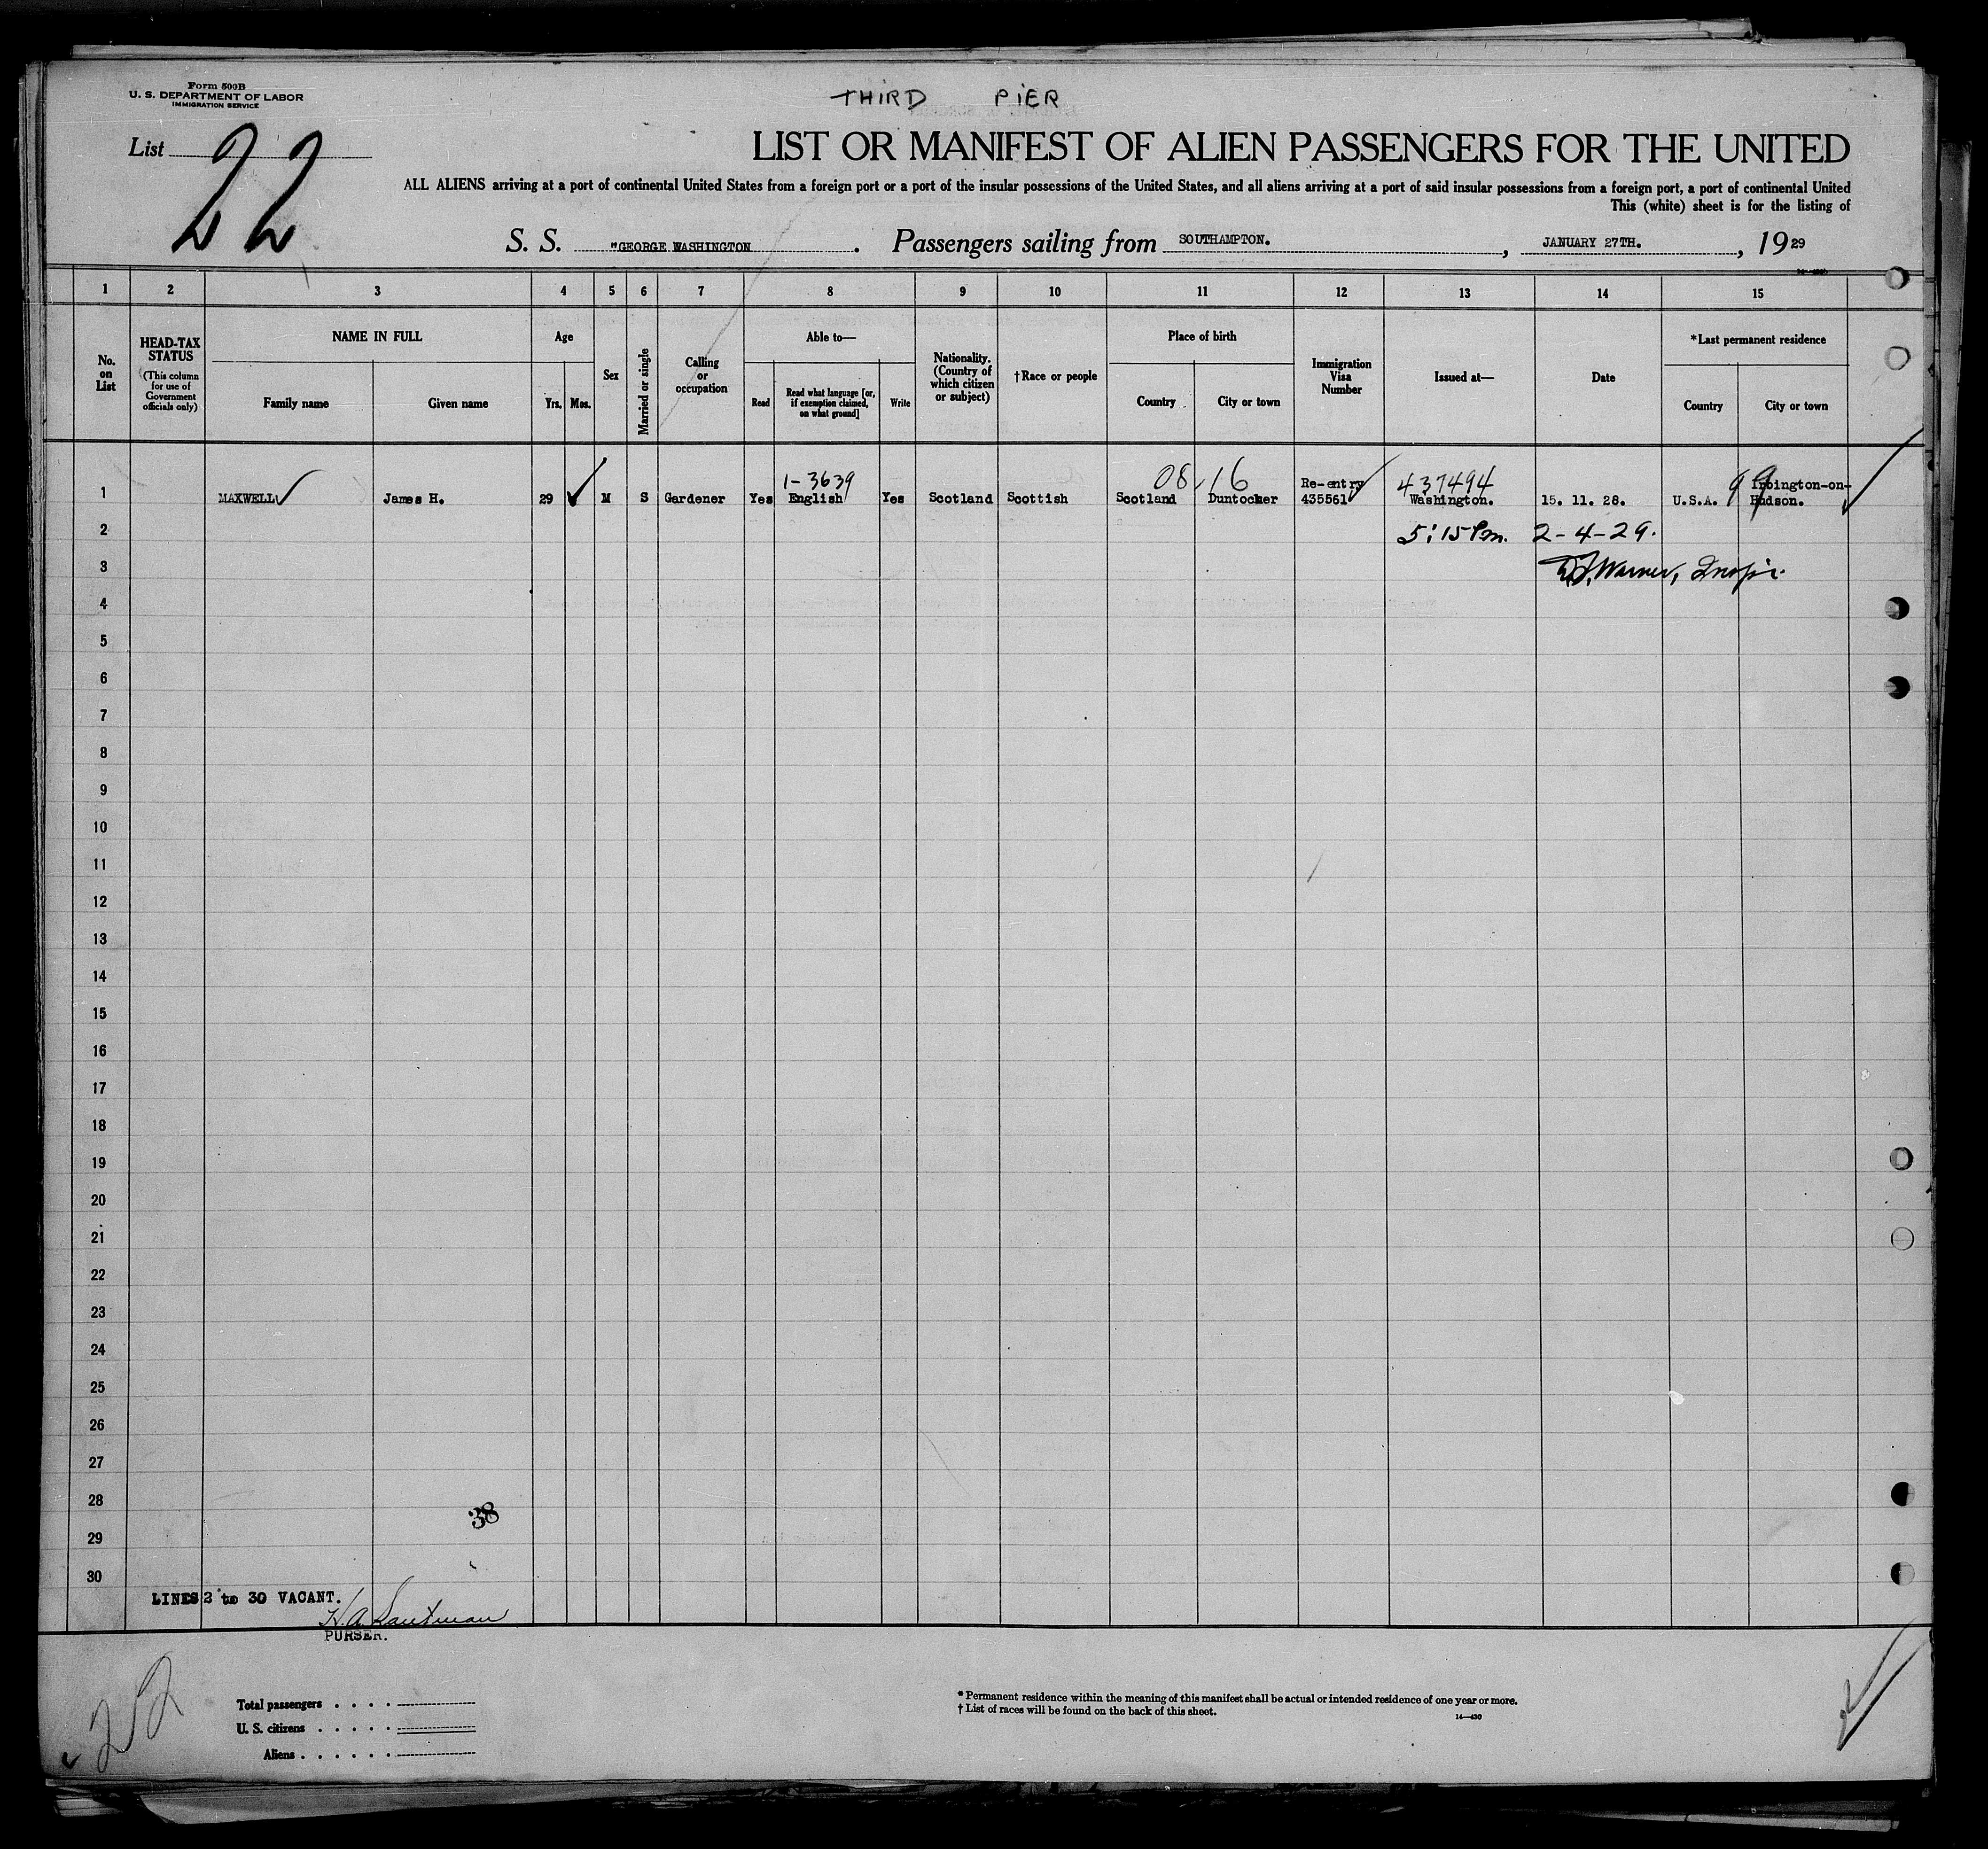 Form 500B
U. S. DEPARTMENT OF LABOR
IMMIGRATION SERVICE
THIRD PIER
List 22
LIST OR MANIFEST OF ALIEN PASSENGERS FOR THE UNITED
ALL ALIENS arriving at a port of continental United States from a foreign port or a port of the insular possessions of the United States, and all aliens arriving at a port of said insular possessions from a foreign port, a port of continental United
This (white) sheet is for the listing of
S. S. "GEORGE WASHINGTON. Passengers sailing from SOUTHAMPTON. , JANUARY 27TH. , 1929
1 2 3 4 5 6 7 8 9 10 11 12 13 14 15
No. on List
HEAD-TAX STATUS
(This column for use of Government officials only)
NAME IN FULL
Family name
Given name
Age
Yrs. Mos.
Sex
Married or single
Calling or occupation
Able to—
Read
Read what language [or, if exemption claimed, on what ground]
Write
Nationality. (Country of which citizen or subject)
†Race or people
Place of birth
Country
City or town
Immigration Visa Number
Issued at—
Date
*Last permanent residence
Country
City or town
1-3639 08 16 Re-entry 437494 99 Irbington-on-
1 MAXWELL James H. 29 M S Gardener Yes English Yes Scotland Scottish Scotland Duntocher 435561 Washington. 15. 11. 28. U.S.A. Hudson.
2 5:15 Pm. 2-4-29.
3 Warner, Inspr.
4
5
6
7
8
9
10
11
12
13
14
15
16
17
18
19
20
21
22
23
24
25
26
27
28
38
29
30
LINES 2 to 30 VACANT.
H. A.
PURSER.
22
Total passengers
U. S. citizens
Aliens
* Permanent residence within the meaning of this manifest shall be actual or intended residence of one year or more.
† List of races will be found on the back of this sheet.
14—430